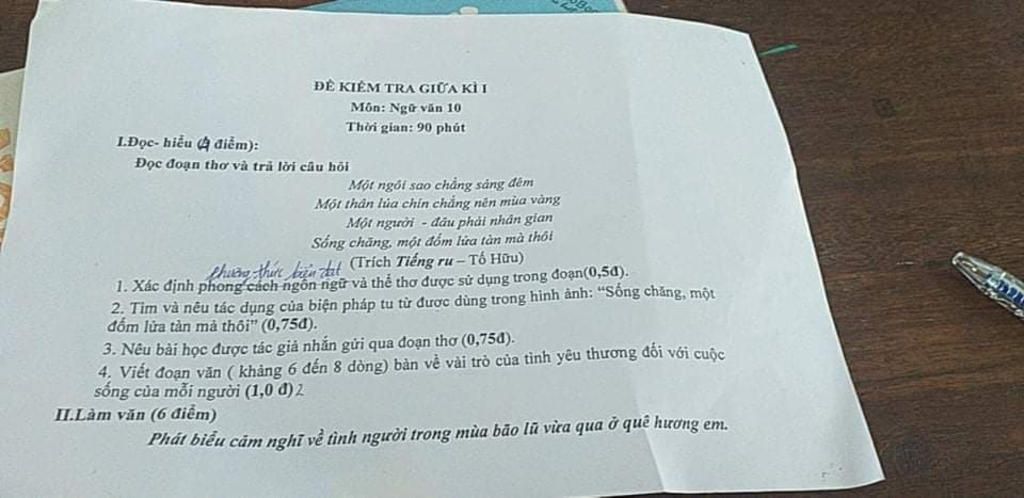 ĐỀ KIỂM TRA GIỮA KÌ I
Môn: Ngữ văn 10
Thời gian: 90 phút
I.Đọc- hiểu (4 điểm):
Đọc đoạn thơ và trả lời câu hỏi
Một ngôi sao chẳng sáng đêm
Một thân lúa chín chẳng nên mùa vàng
Một người - đâu phải nhân gian
Sống chăng, một đốm lửa tàn mà thôi
(Trích Tiếng ru – Tố Hữu)
phương thức biện đạt
1. Xác định phong cách ngôn ngữ và thể thơ được sử dụng trong đoạn(0,5đ).
2. Tìm và nêu tác dụng của biện pháp tu từ được dùng trong hình ảnh: “Sống chăng, một
đốm lửa tàn mà thôi” (0,75đ).
3. Nêu bài học được tác giả nhắn gửi qua đoạn thơ (0,75đ).
4. Viết đoạn văn ( khảng 6 đến 8 dòng) bàn về vài trò của tình yêu thương đối với cuộc
sống của mỗi người (1,0 đ) 2
II.Làm văn (6 điểm)
Phát biểu cảm nghĩ về tình người trong mùa bão lũ vừa qua ở quê hương em.